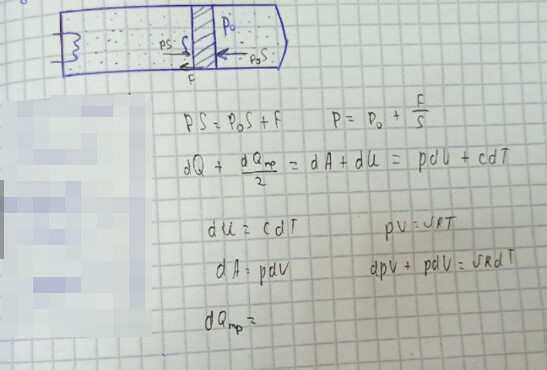 pS S P₀
p₀S
F
PS = P₀S + F P = P₀ + F/S
dQ + dQтр/2 = dA + dU = pdV + cdT
dU = cdT pV = νRT
dA = pdV dpV + pdV = νRdT
dQтр =